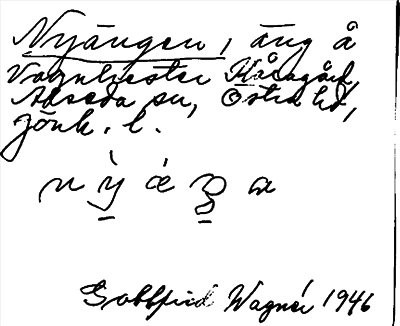 Nyängen, äng å
Vagnhester Håragård,
Alseda sn, Östra hd,
Jönk. l.
n ỳ̱ ǽ ŋ̱ a
Gottfrid Wagnér 1946